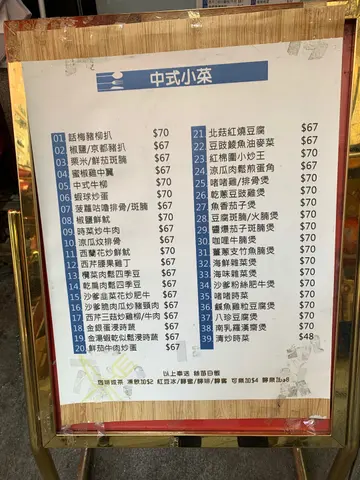 中式小菜
01. 話梅豬柳扒 $70
02. 椒鹽/京都豬扒 $67
03. 粟米/鮮茄斑腩 $67
04. 蜜椒雞中翼 $67
05. 中式牛柳 $70
06. 蝦球炒蛋 $70
07. 菠蘿咕嚕排骨/斑腩 $70
08. 椒鹽鮮魷 $70
09. 時菜炒牛肉 $67
10. 涼瓜炆排骨 $67
11. 西蘭花炒鮮魷 $70
12. 西芹腰果雞丁 $67
13. 欖菜肉鬆四季豆 $67
14. 乾扁肉鬆四季豆 $67
15. 沙爹韭菜花炒肥牛 $67
16. 沙爹脆肉瓜炒豬頸肉 $67
17. 西芹三菇炒雞柳/牛肉 $67
18. 金銀蛋浸時蔬 $67
19. 金湯蝦乾似鬆浸時蔬 $67
20. 鮮茄牛肉炒蛋 $67
21. 北菇紅燒豆腐 $67
22. 豆豉鯪魚油麥菜 $67
23. 紅棉圍小炒王 $70
24. 涼瓜肉鬆煎蛋角 $67
25. 啫啫雞/排骨煲 $70
26. 乾蔥豆豉雞煲 $70
27. 魚香茄子煲 $70
28. 豆腐斑腩/火腩煲 $70
29. 醬爆茄子斑腩煲 $70
30. 咖喱牛腩煲 $70
31. 薑蔥支竹魚腩煲 $70
32. 海鮮雜菜煲 $70
33. 海味雜菜煲 $70
34. 沙爹粉絲肥牛煲 $70
35. 啫啫時菜 $70
36. 鹹魚雞粒豆腐煲 $70
37. 八珍豆腐煲 $70
38. 南乳羅漢齋煲 $70
39. 清炒時菜 $48
以上奉送 絲苗白飯
咖啡或茶 凍飲加$2 紅豆冰/
可樂加$4